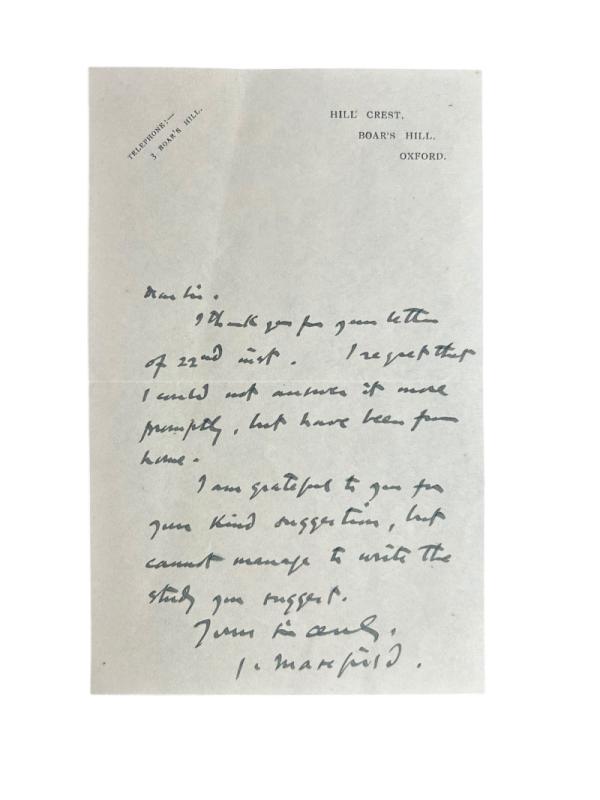 TELEPHONE:—
3 BOAR'S HILL.
HILL CREST,
BOAR'S HILL,
OXFORD.
Dear Sir.
I thank you for your letter
of 22nd inst. I regret that
I could not answer it more
promptly, but have been from
home.
I am grateful to you for
your kind suggestion, but
cannot manage to write the
study you suggest.
Yours sincerely,
J. Masefield.